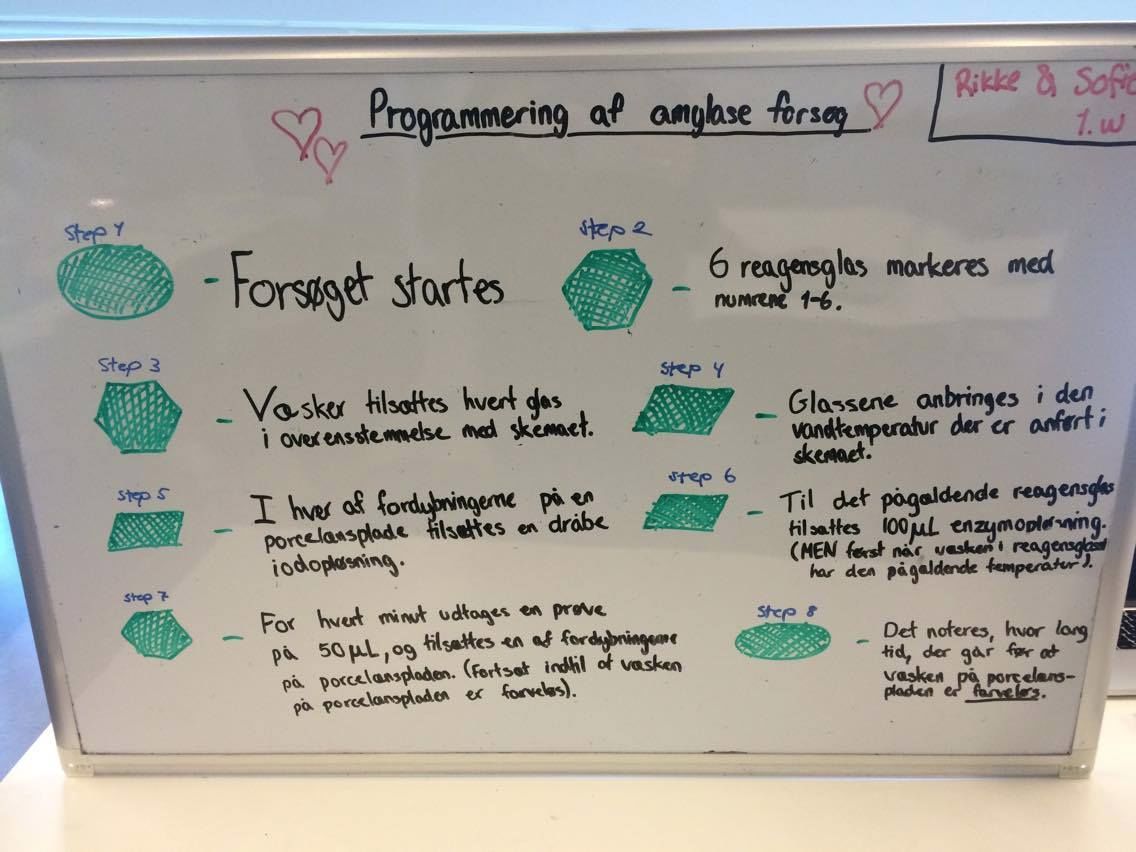 Programmering af amylase forsøg
Rikke & Sofie
1.w
Step 1
- Forsøget startes
Step 2
- 6 reagensglas markeres med
numrene 1-6.
Step 3
- Væsker tilsættes hvert glas
i overensstemmelse med skemaet.
Step 4
- Glassene anbringes i den
vandtemperatur der er anført i
skemaet.
Step 5
- I hver af fordybningerne på en
porcelænsplade tilsættes en dråbe
iodopløsning.
Step 6
- Til det pågældende reagensglas
tilsættes 100 µL enzymopløsning.
(MEN først når væsken i reagensglasset
har den pågældende temperatur).
Step 7
- For hvert minut udtages en prøve
på 50 µL, og tilsættes en af fordybningerne
på porcelænspladen. (Fortsæt indtil at væsken
på porcelænspladen er farveløs).
Step 8
- Det noteres, hvor lang
tid, der går før at
væsken på porcelæns-
pladen er farveløs.